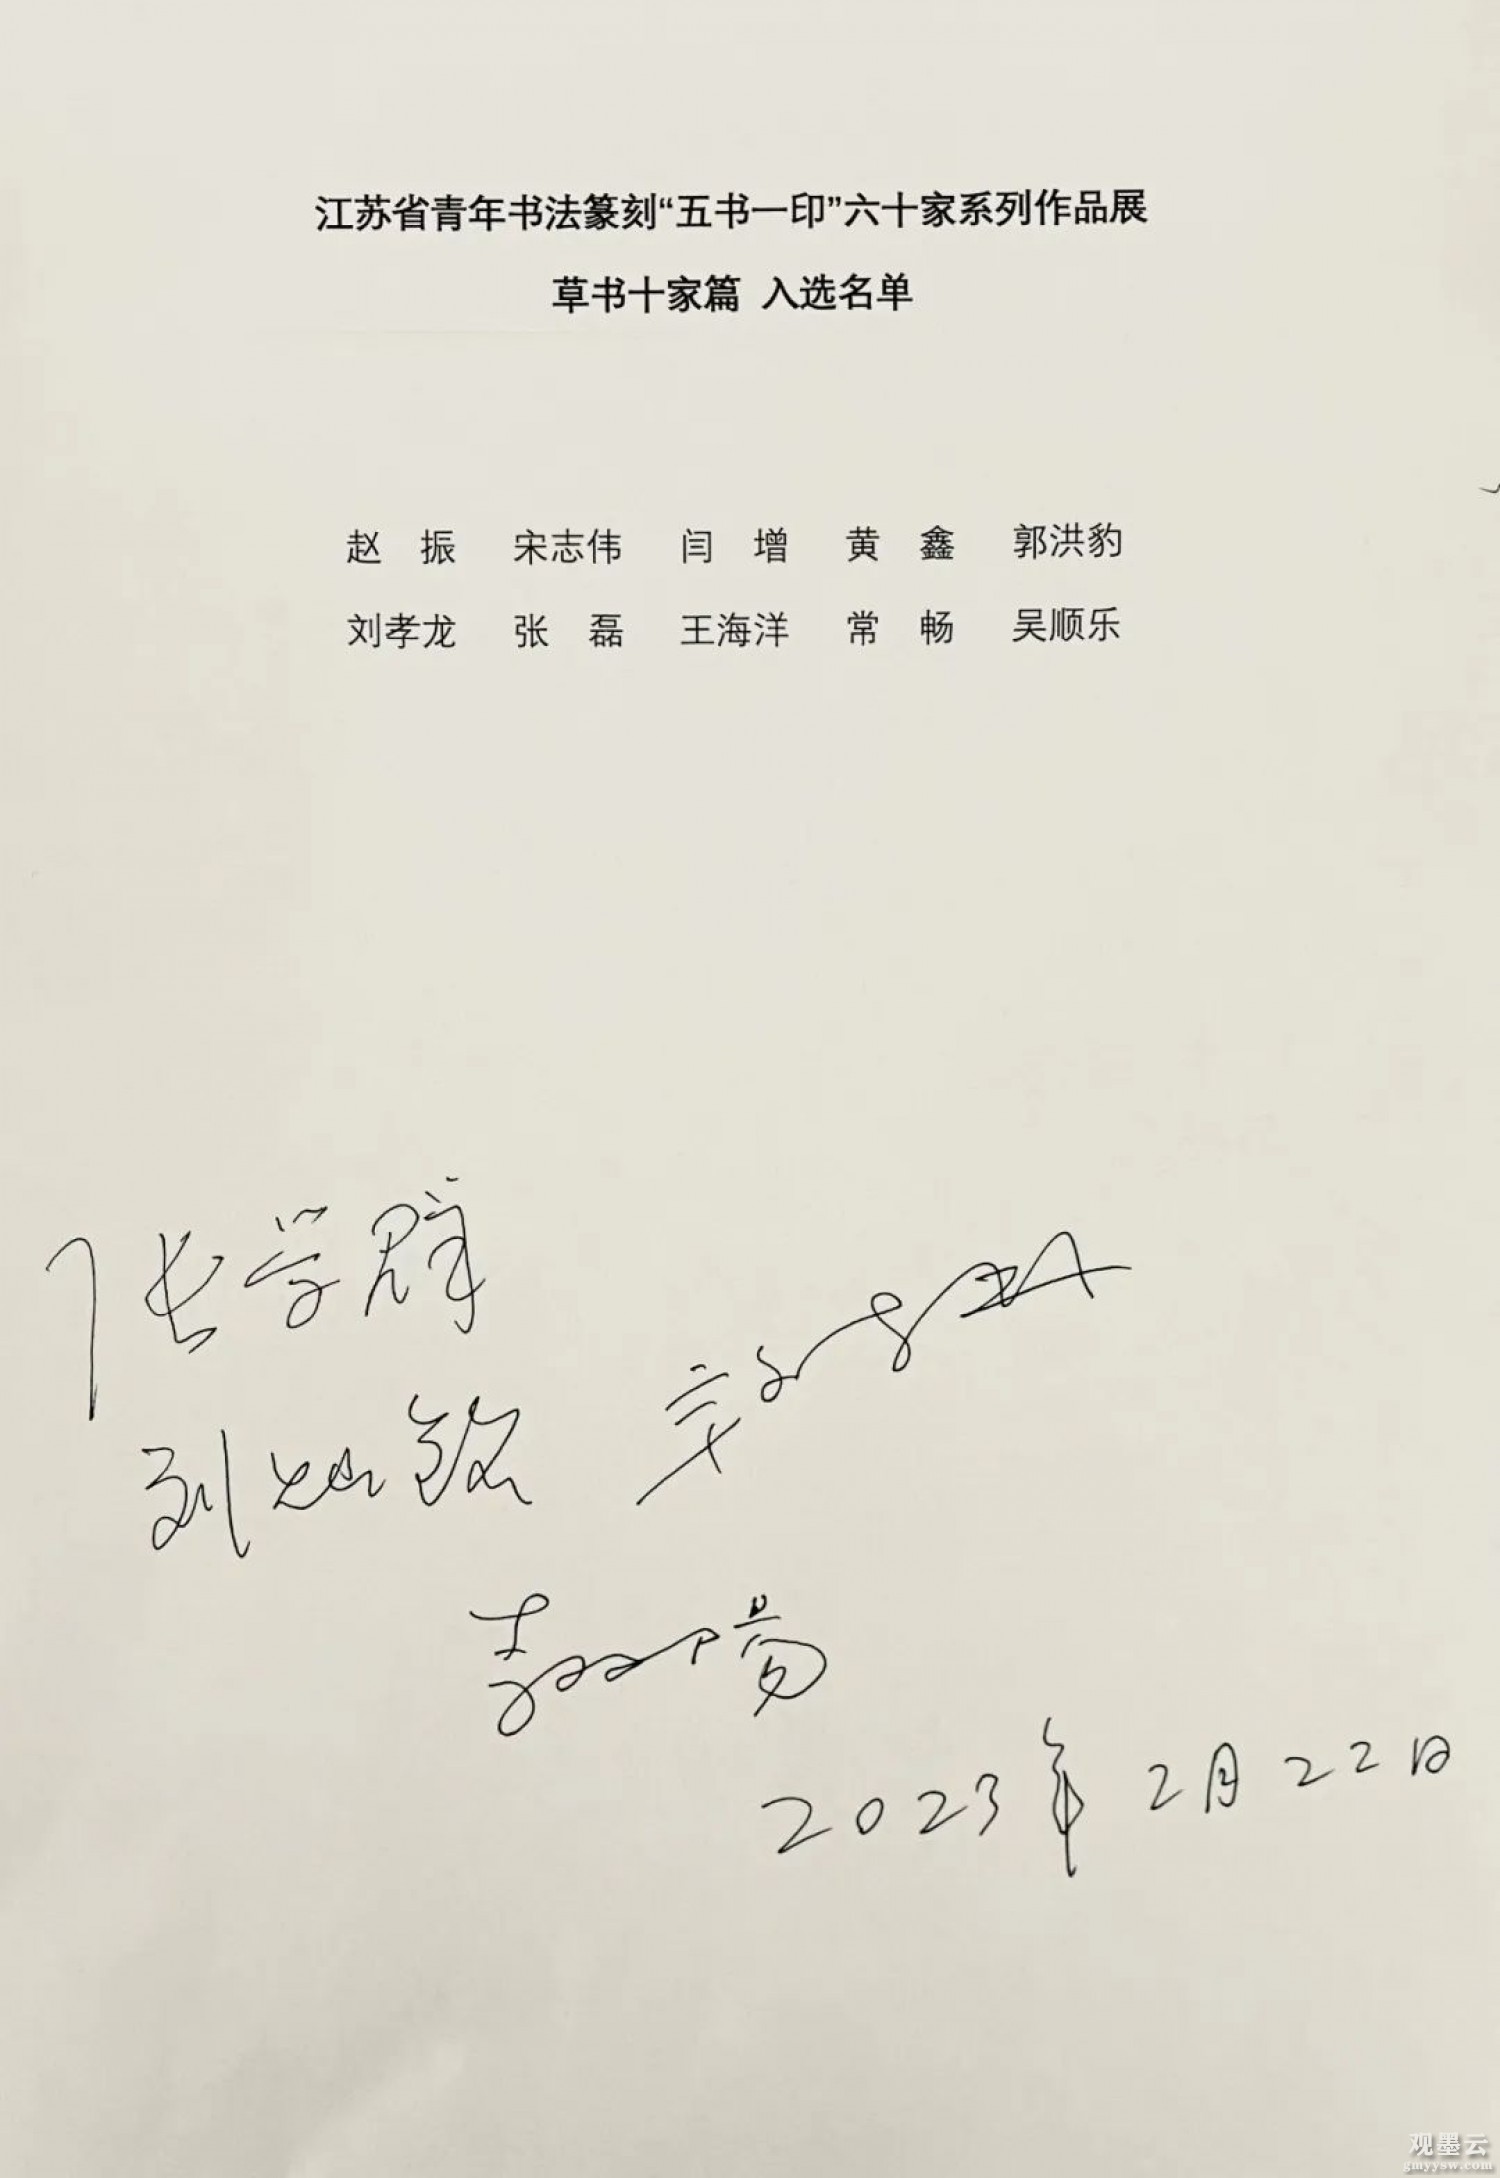 江苏省青年书法篆刻“五书一印”六十家系列作品展
草书十家篇 入选名单
赵 振 宋志伟 闫 增 黄 鑫 郭洪豹
刘孝龙 张 磊 王海洋 常 畅 吴顺乐
张学群
刘灿铭
2023年2月22日
观墨云
gmyysw.com